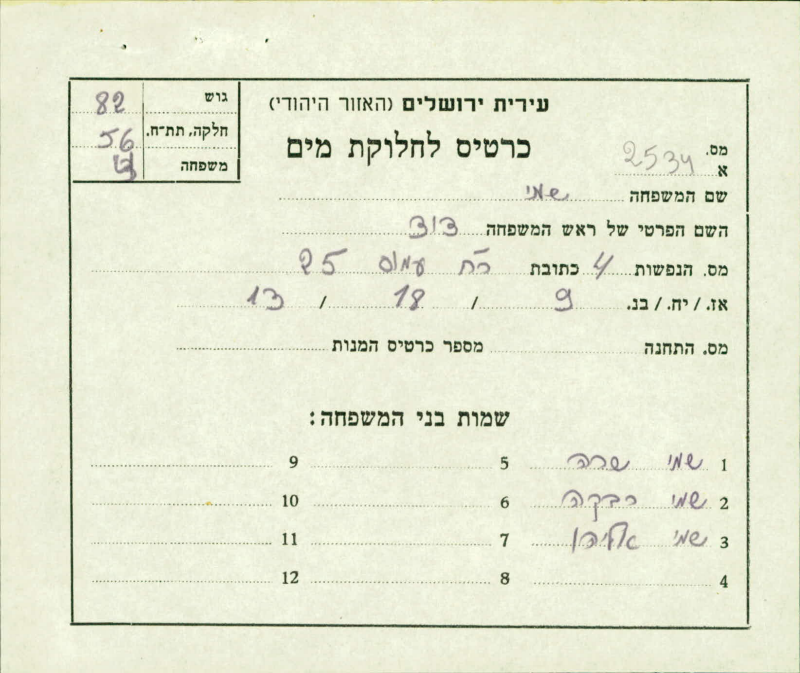 עירית ירושלים (האזור היהודי)
כרטיס לחלוקת מים
גוש 82
חלקה, תת־ח. 56
משפחה
מס. א 2534
שם המשפחה שמי
השם הפרטי של ראש המשפחה דוד
מס. הנפשות 4 כתובת רח עמוס 25
אז. / יח. / בנ. 9 / 18 / 13
מס. התחנה מספר כרטיס המנות
שמות בני המשפחה:
1 שמי שרה 5 9
2 שמי רבקה 6 10
3 שמי אליהו 7 11
4 8 12